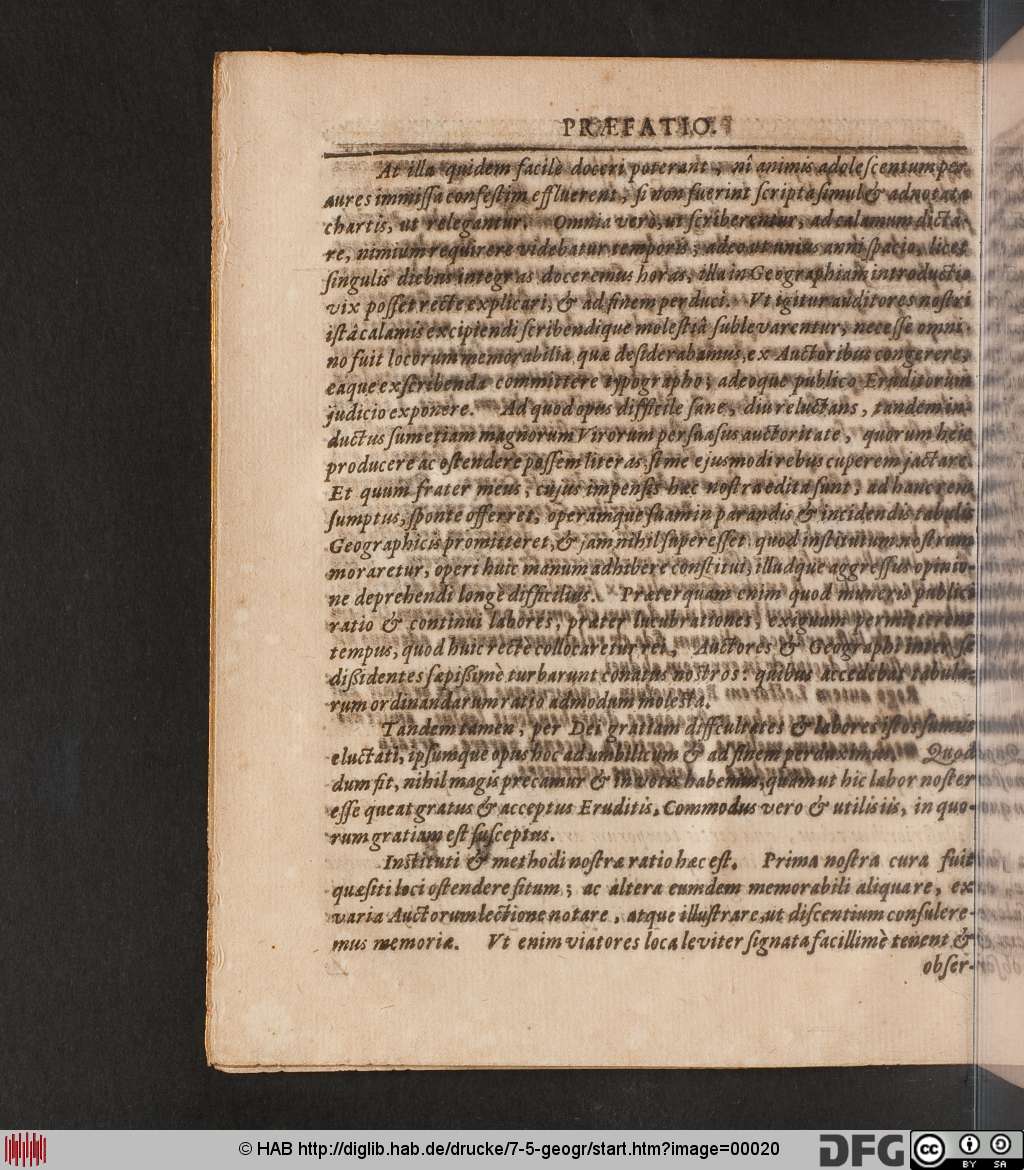 PRÆFATIO.
At illa quidem facilè doceri poterant, nî animis adolescentum per
aures immissa confestim effluerent, si non fuerint scripta simul & adnotata
chartis, ut relegantur. Omnia verò, ut scriberentur, ad calamum dicta-
re, nimium requirere videbatur temporis; adeo ut unius anni spacio, licet
singulis diebus integras doceremus horas, illa in Geographiam introductio
vix posset recte explicari, & ad finem perduci. Vt igitur auditores nostri
istâ calamis excipiendi scribendique molestiâ sublevarentur, necesse omni-
no fuit locorum memorabilia quæ desiderabamus, ex Auctoribus congerere,
eaque exscribenda committere typographo, adeoque publico Eruditorum
judicio exponere. Ad quod opus difficile sane, diu reluctans, tandem in-
ductus sum etiam magnorum Virorum persuasus auctoritate, quorum heic
producere ac ostendere possem literas, si me ejusmodi rebus cuperem jactare.
Et quum frater meus, cujus impensis hæc nostra edita sunt, ad hanc rem
sumptus, sponte offerret, operamque suam in parandis & incidendis tabulis
Geographicis promitteret, & jam nihil superesset quod institutum nostrum
moraretur, operi huic manum adhibere constitui, illudque aggressus opinio-
ne deprehendi longè difficilius. Præterquam enim quod muneris publici
ratio & continui labores, præter lucubrationes, exiguum permitterent
tempus, quod huic recte collocaretur rei, Auctores & Geographi inter se
dissidentes sæpissimè turbarunt conatus nostros: quibus accedebat tabula-
rum ordinandarum ratio admodum molesta.
Tandem tamen, per Dei gratiam difficultates & labores istos sumus
eluctati, ipsumque opus hoc ad umbilicum & ad finem perduximus. Quod
dum fit, nihil magis precamur & in votis habemus, quàm ut hic labor noster
esse queat gratus & acceptus Eruditis, Commodus vero & utilis iis, in quo-
rum gratiam est susceptus.
Instituti & methodi nostræ ratio hæc est. Prima nostra cura fuit
quæsiti loci ostendere situm; ac altera eumdem memorabili aliqua re, ex
varia Auctorum lectione notare, atque illustrare, ut discentium consulere-
mus memoriæ. Vt enim viatores loca leviter signata facillimè tenent &
obser-
© HAB http://diglib.hab.de/drucke/7-5-geogr/start.htm?image=00020
DFG
cc BY SA